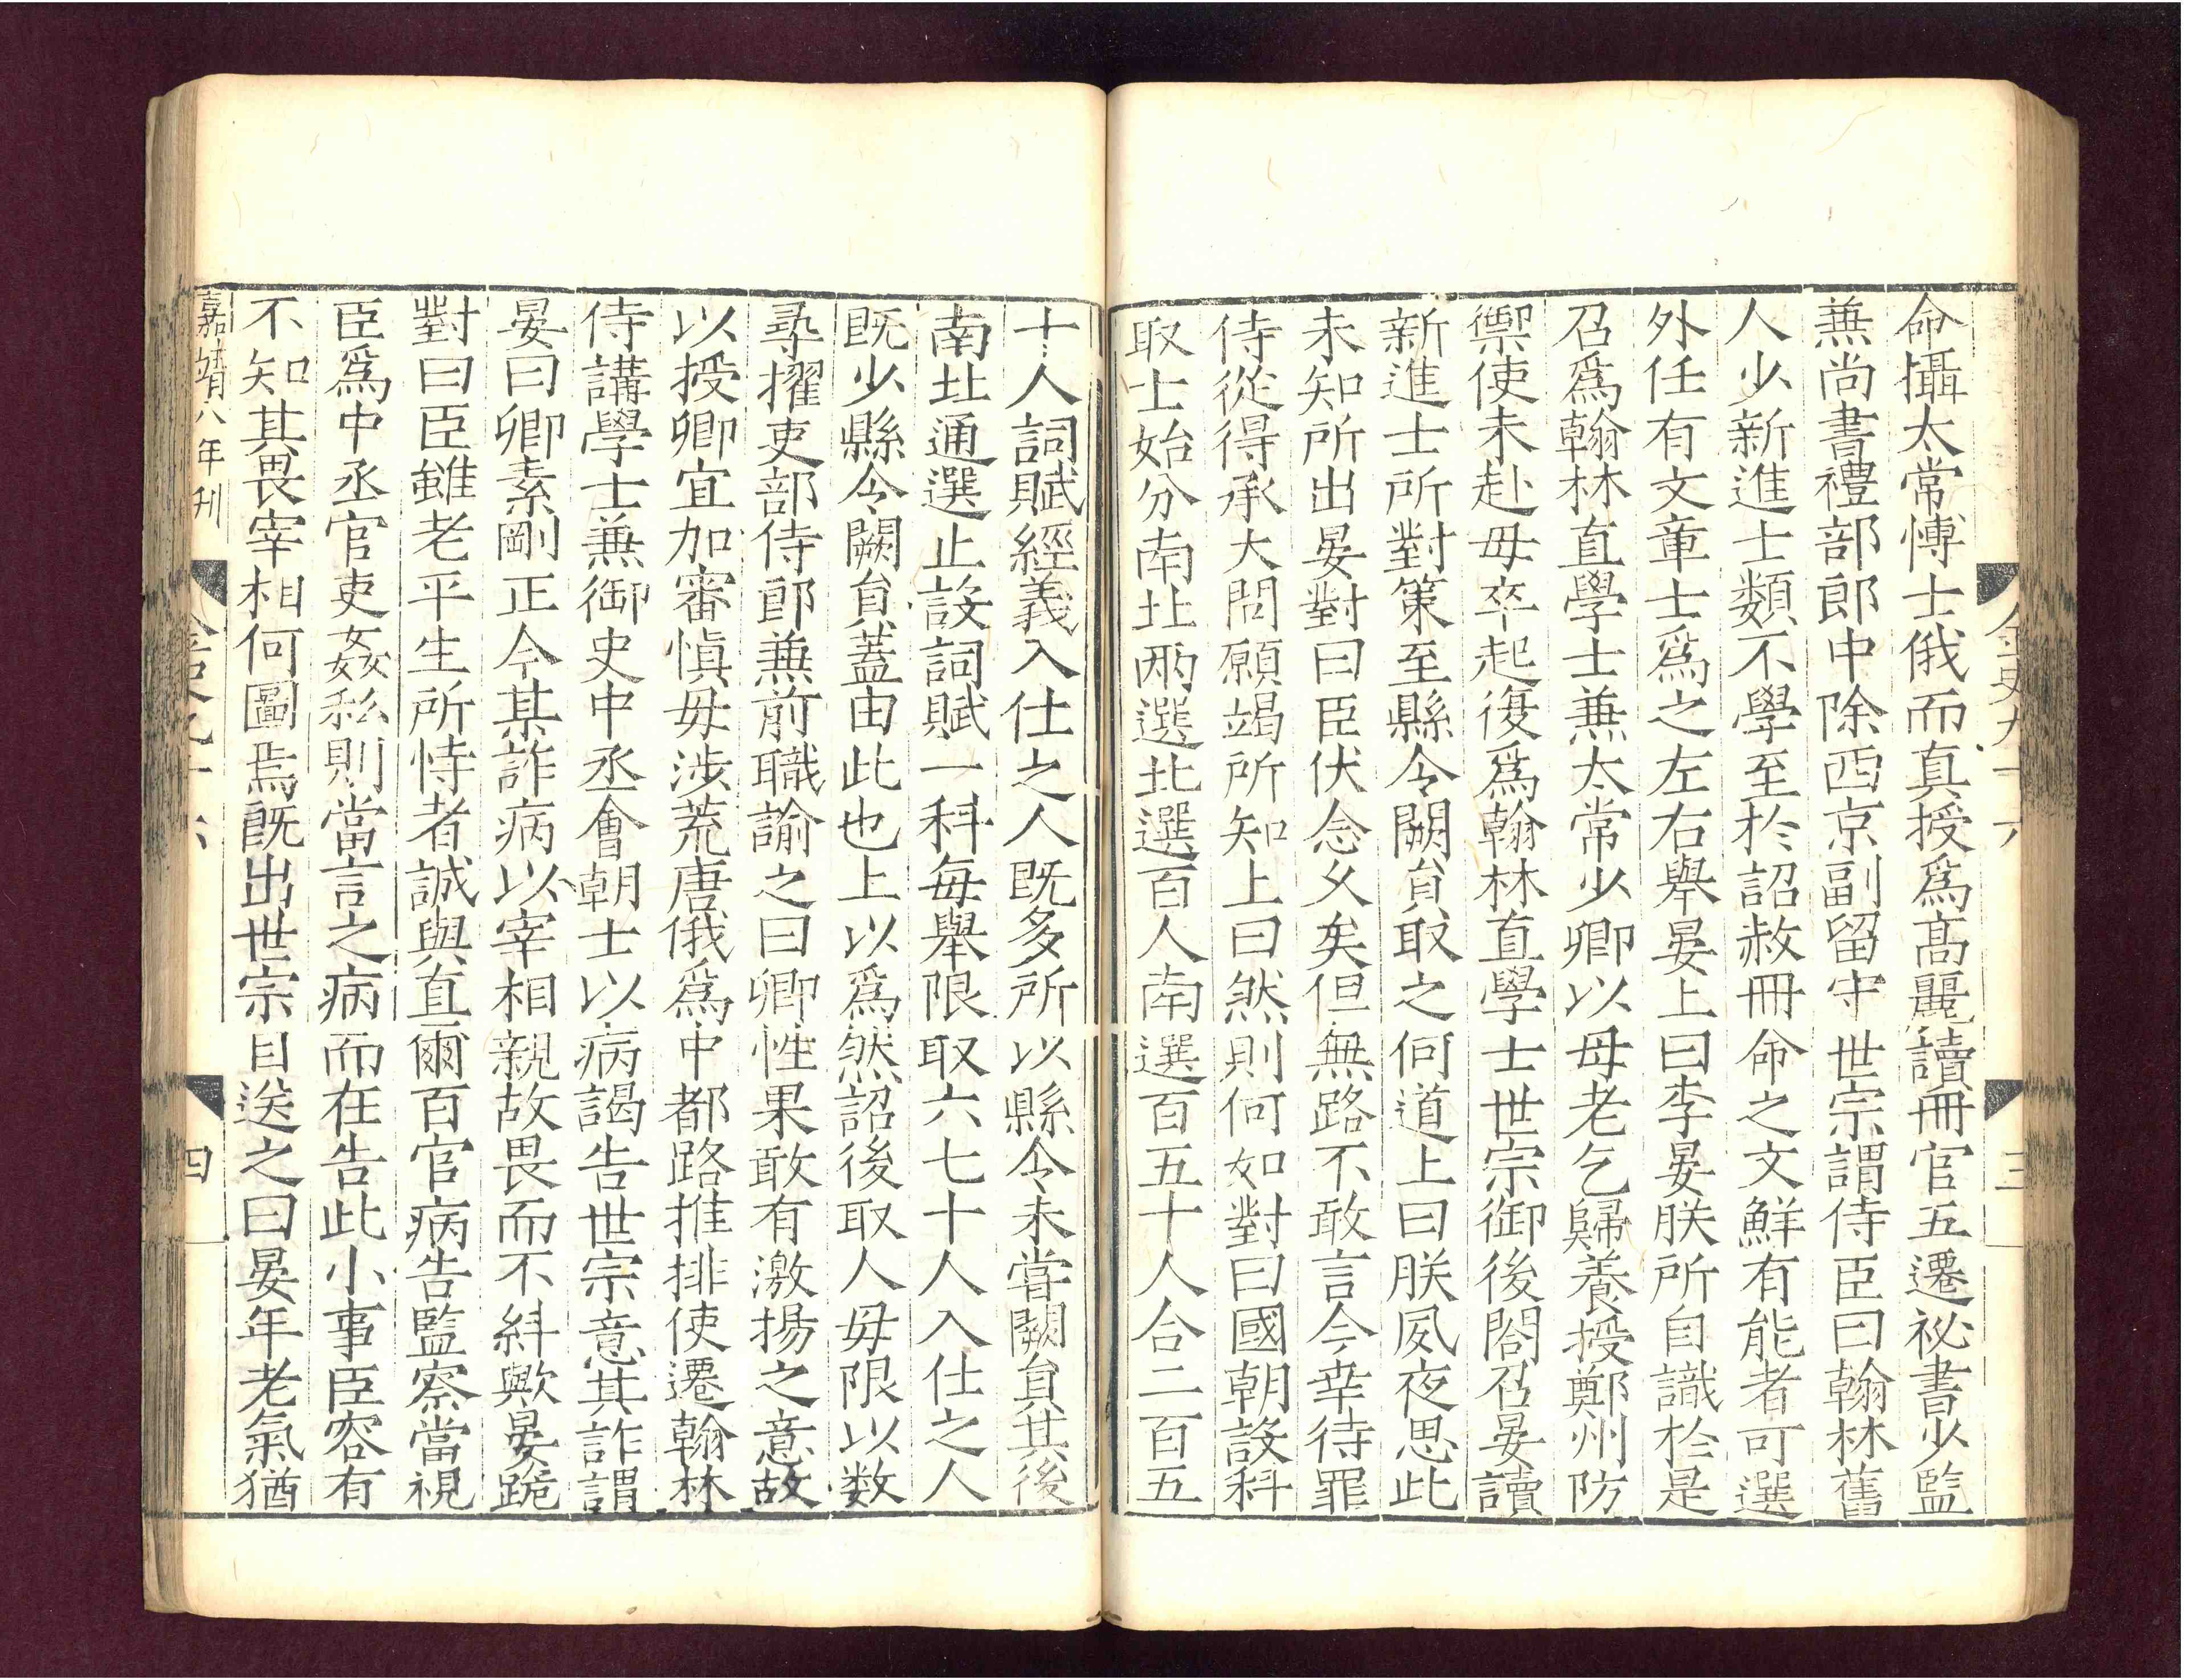 命攝太常博士俄而真授爲髙麗讀冊官五遷祕書少監
兼尚書禮部郎中除西京副留守世宗謂侍臣曰翰林舊
人少新進士類不學至於詔赦冊命之文鮮有能者可選
外任有文章士爲之左右舉晏上曰李晏朕所自識於是
召爲翰林直學士兼太常少卿以母老乞歸養授鄭州防
禦使未赴母卒起復爲翰林直學士世宗御後閤召晏讀
新進士所對策至縣令闕員取之何道上曰朕夙夜思此
未知所出晏對曰臣伏念久矣但無路不敢言今幸待罪
侍從得承大問願竭所知上曰然則何如對曰國朝設科
取士始分南北兩選北選百人南選百五十人合二百五
十人詞賦經義入仕之人既多所以縣令未嘗闕員其後
南北通選止設詞賦一科每舉限取六七十人入仕之人
既少縣令闕員蓋由此也上以爲然詔後取人毋限以数
尋擢吏部侍郎兼前職諭之曰卿性果敢有激揚之意故
以授卿宜加審慎毋涉荒唐俄爲中都路推排使遷翰林
侍講學士兼御史中丞會朝士以病謁告世宗意其詐謂
晏曰卿素剛正今某詐病以宰相親故畏而不糾歟晏跪
對曰臣雖老平生所恃者誠與直爾百官病告監察當視
臣爲中丞官吏姦私則當言之病而在告此小事臣容有
不知其畏宰相何圖焉既出世宗目送之曰晏年老氣猶
金史九十六
三
嘉靖八年刊
金史九十六
四